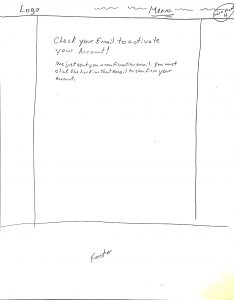 Logo
Menu
Check your Email to activate
your Account!
We just sent you a confirmation email. You must
click the link in that email to confirm your
account.
Footer